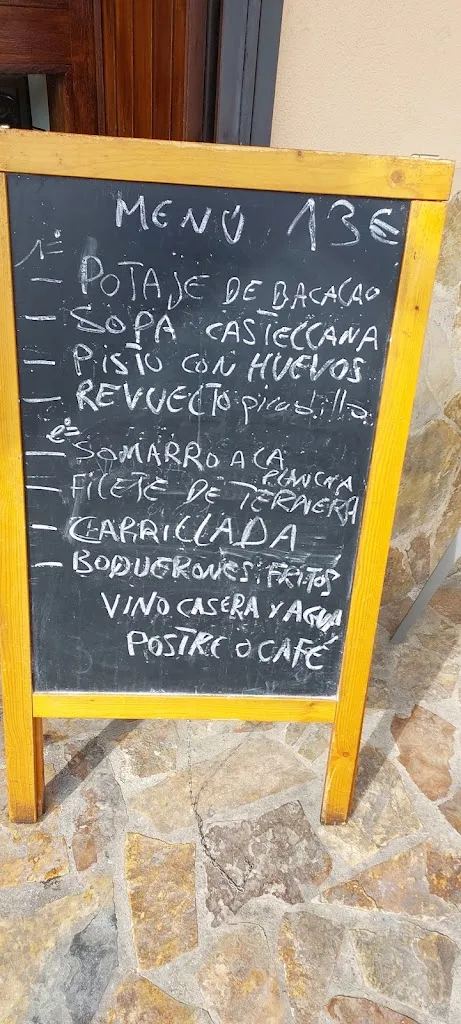 MENÚ 13€
1º
- POTAJE DE BACALAO
- SOPA CASTELLANA
- PISTO CON HUEVOS
- REVUELTO picadillo
2º
- SOMARRO A LA PLANCHA
- FILETE DE TERNERA
- CARRILLADA
- BOQUERONES FRITOS
VINO CASERA Y AGUA
POSTRE O CAFÉ